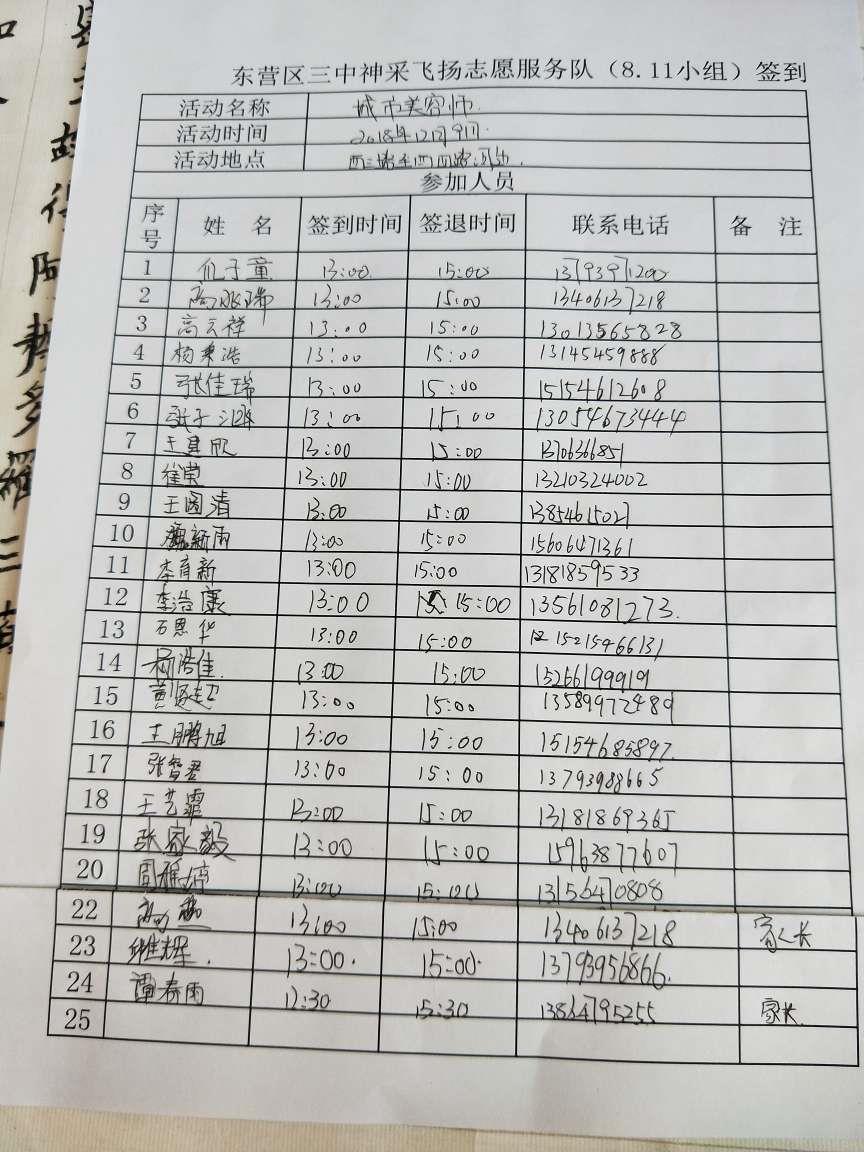 东营区三中神采飞扬志愿服务队（8.11小组）签到
活动名称 城市美容师.
活动时间 2018年12月9日.
活动地点 西三路至西四路河边.
参加人员
序号 姓 名 签到时间 签退时间 联系电话 备 注
1 童 13:00 15:00 13793971200
2 高 瑞 13:00 15:00 13406137218
3 高云祥 13:00 15:00 13013565828
4 杨秉浩 13:00 15:00 13145459888
5 张佳瑞 13:00 15:00 15154612608
6 张子 13:00 15:00 13054673444
7 王 欣 13:00 15:00 13706366851
8 崔莹 13:00 15:00 13210324002
9 王圆清 13:00 15:00 13854615027
10 魏新雨 13:00 15:00 15606471361
11 李育新 13:00 15:00 13181859533
12 李浩康 13:00 15:00 13561081273.
13 石恩华 13:00 15:00 15215466131
14 杨浩佳. 13:00 15:00 15266199919
15 黄 超 13:00 15:00 13589972489
16 王鹏旭 13:00 15:00 15154685897.
17 张智君 13:00 15:00 13793988665
18 王艺霏 13:00 15:00 13181869365
19 张家毅 13:00 15:00 15963877607
20 周雅婷 13:00 15:00 13156470808
22 高 燕 13:00 15:00 13406137218 家长
23 辉. 13:00. 15:00. 13793956866.
24 谭春雨 12:30 15:30 13864795255 家长.
25